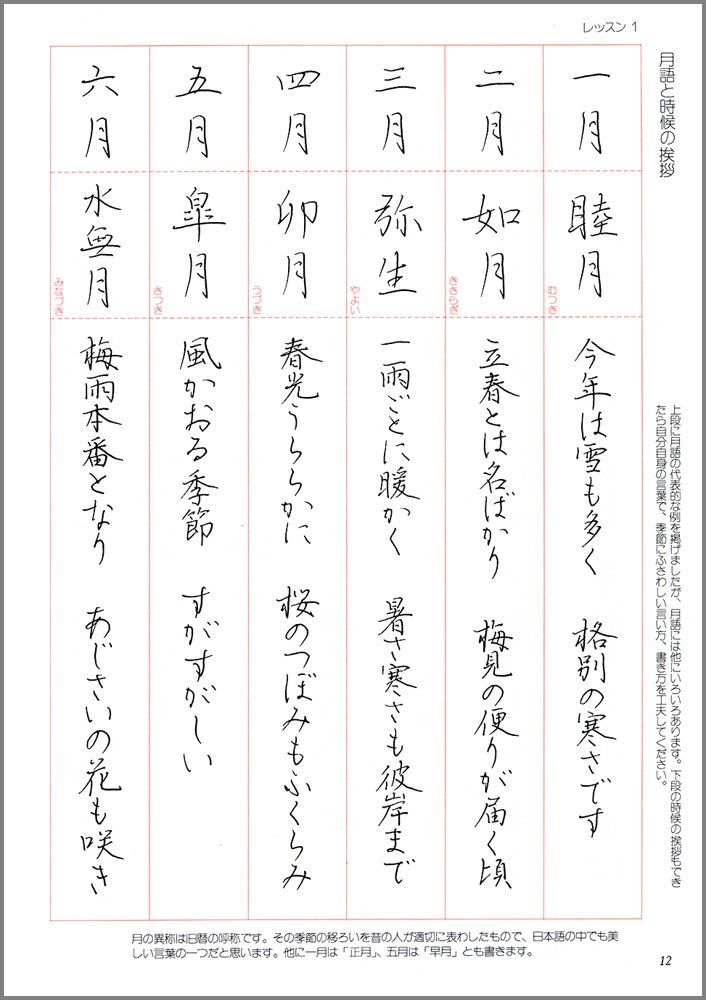 レッスン 1
月語と時候の挨拶
上段に月語の代表的な例を掲げましたが、月語には他にいろいろあります。下段の時候の挨拶もでき
たら自分自身の言葉で、季節にふさわしい言い方、書き方を工夫してください。
一月
睦月
むつき
今年は雪も多く 格別の寒さです
二月
如月
きさらぎ
立春とは名ばかり 梅見の便りが届く頃
三月
弥生
やよい
一雨ごとに暖かく 暑さ寒さも彼岸まで
四月
卯月
うづき
春光うららかに 桜のつぼみもふくらみ
五月
皐月
さつき
風かおる季節 すがすがしい
六月
水無月
みなづき
梅雨本番となり あじさいの花も咲き
月の異称は旧暦の呼称です。その季節の移ろいを昔の人が適切に表わしたもので、日本語の中でも美
しい言葉の一つだと思います。他に一月は「正月」、五月は「早月」とも書きます。
12